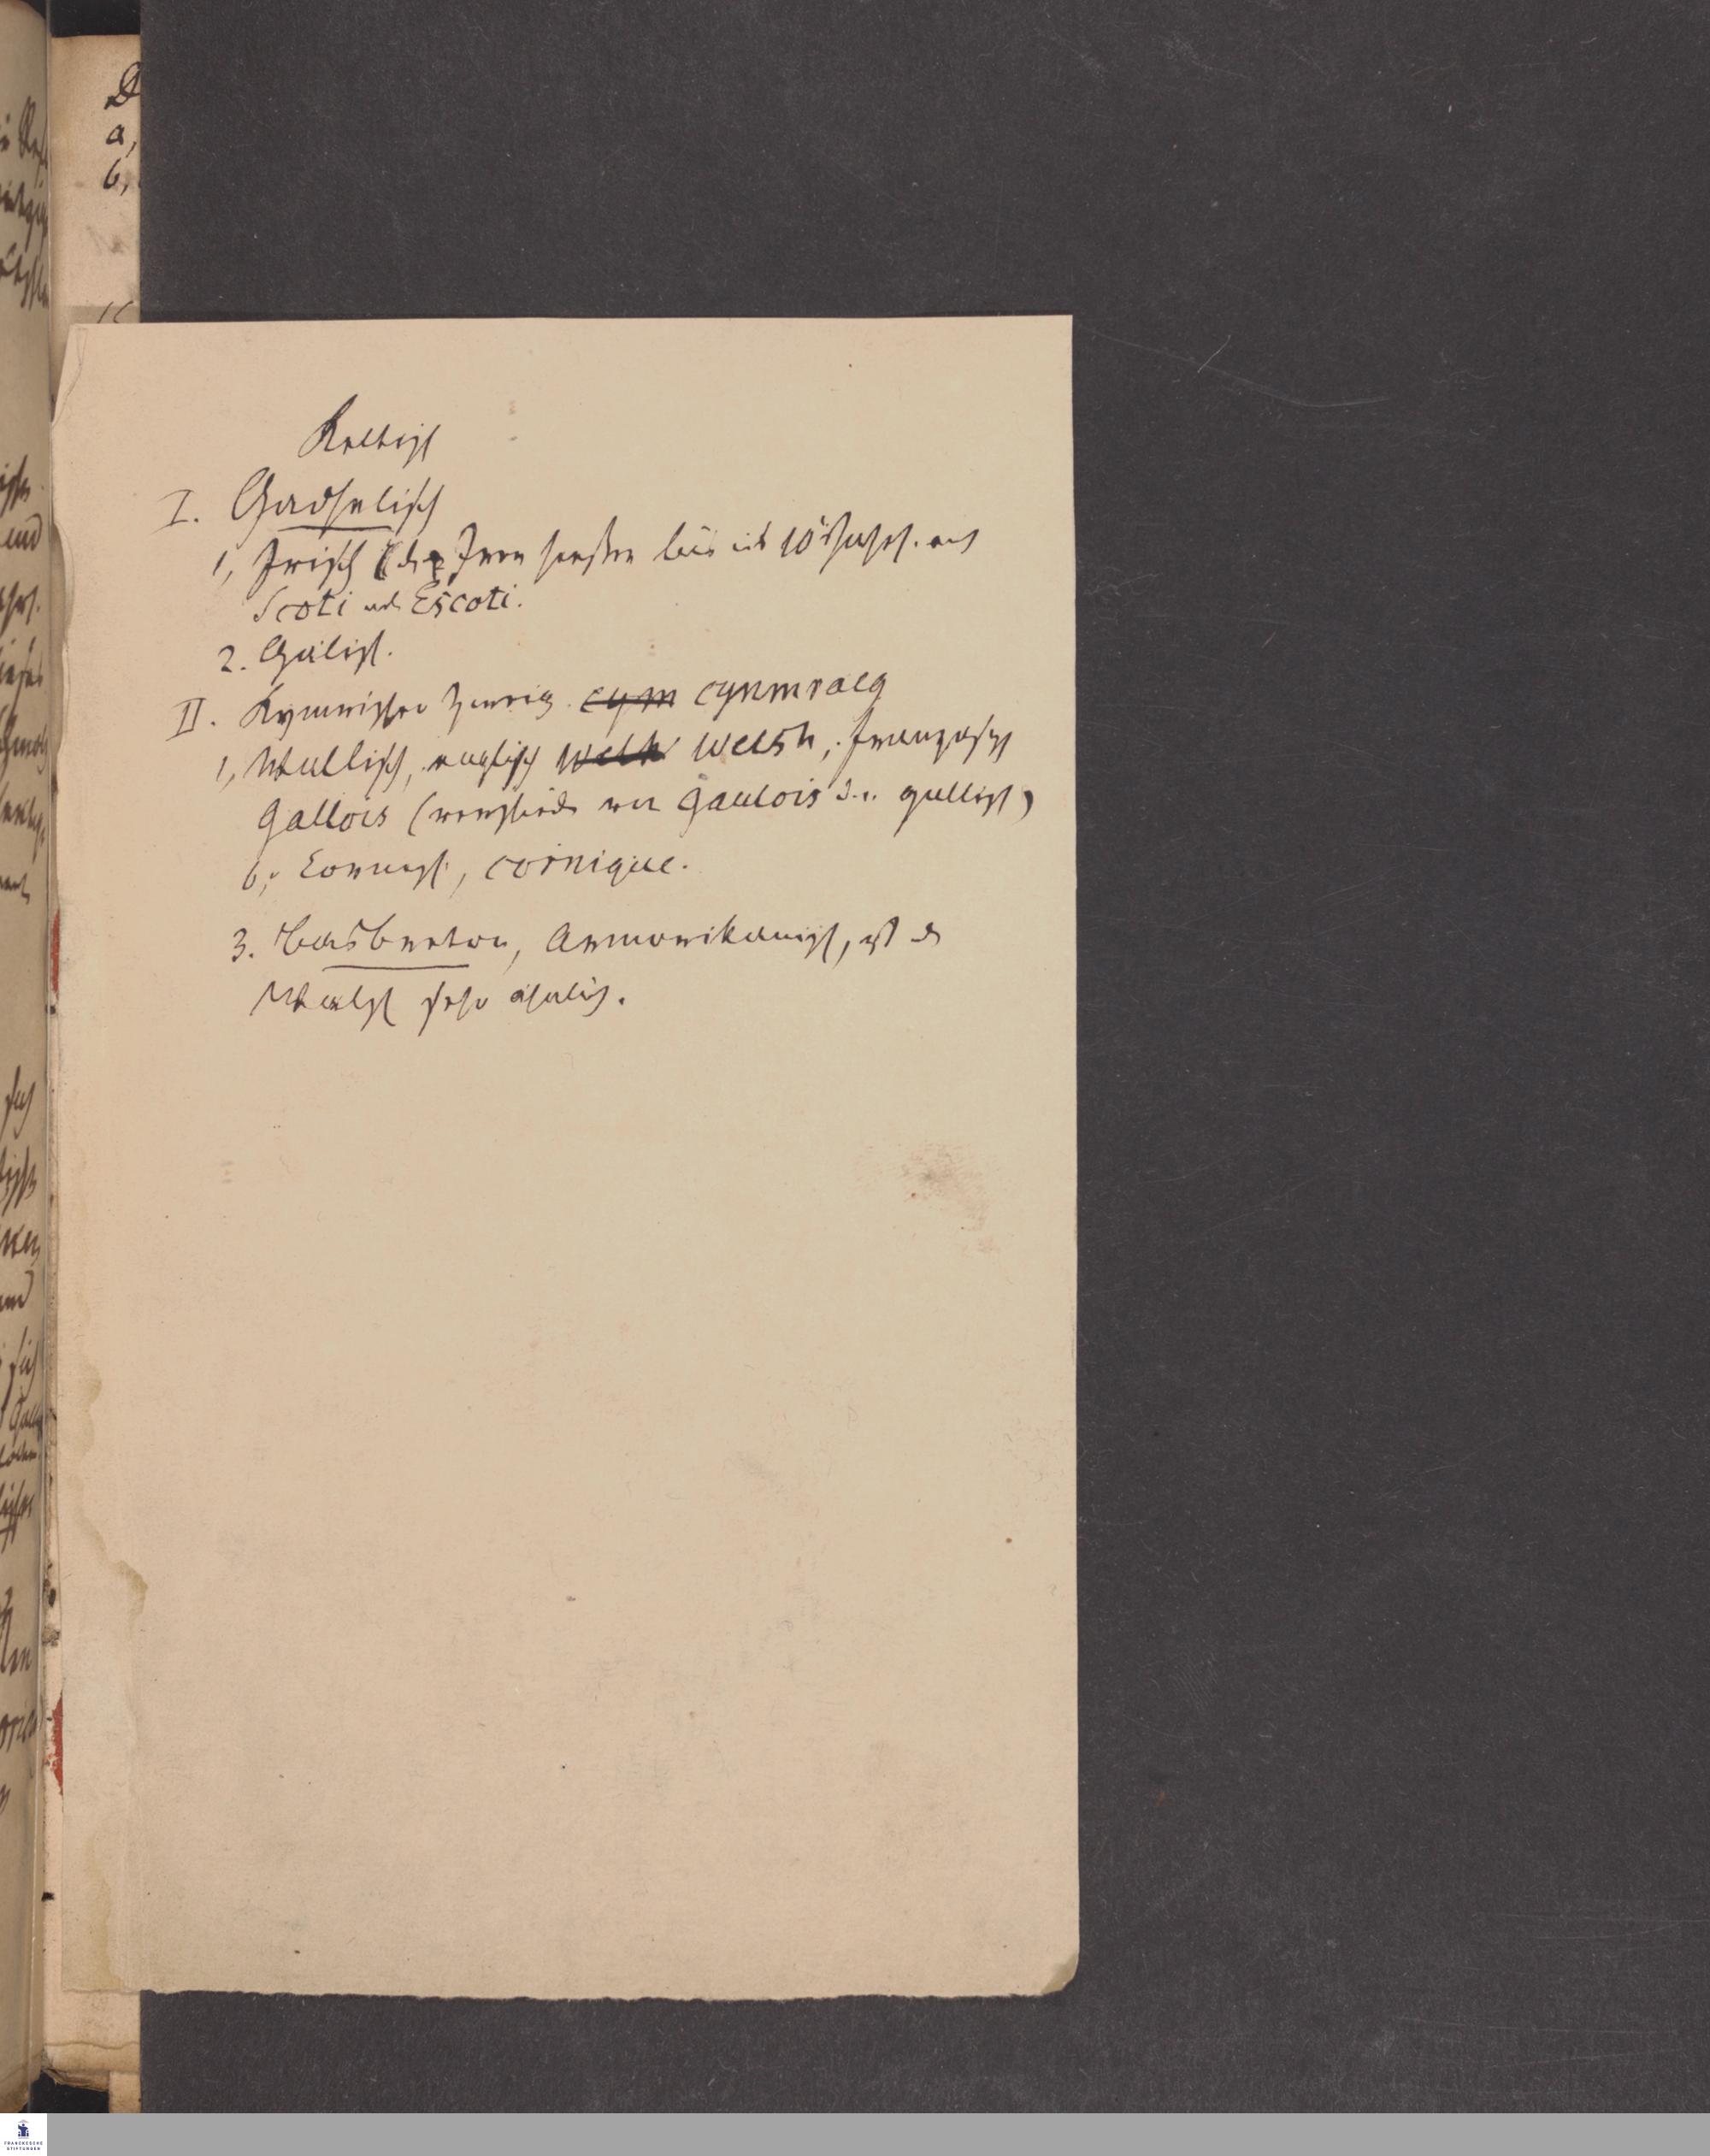 Keltisch
I. Gadhelisch
1, Irisch (die Iren heißen bis ins 10te Jahrh. auch
Scoti und Escoti.
2. Gälisch.
II. Kymrischer Zweig. cym cynmraeg
1, Wallisch, englisch Welsh, französisch
Gallois (verschieden von Gaulois d.i. gallisch)
b, Cornisch, cornique.
3. basbreton, Armorikanisch, ist d
Walisch sehr ähnlich.
D
a,
b,
FRANCKESCHE
STIFTUNGEN